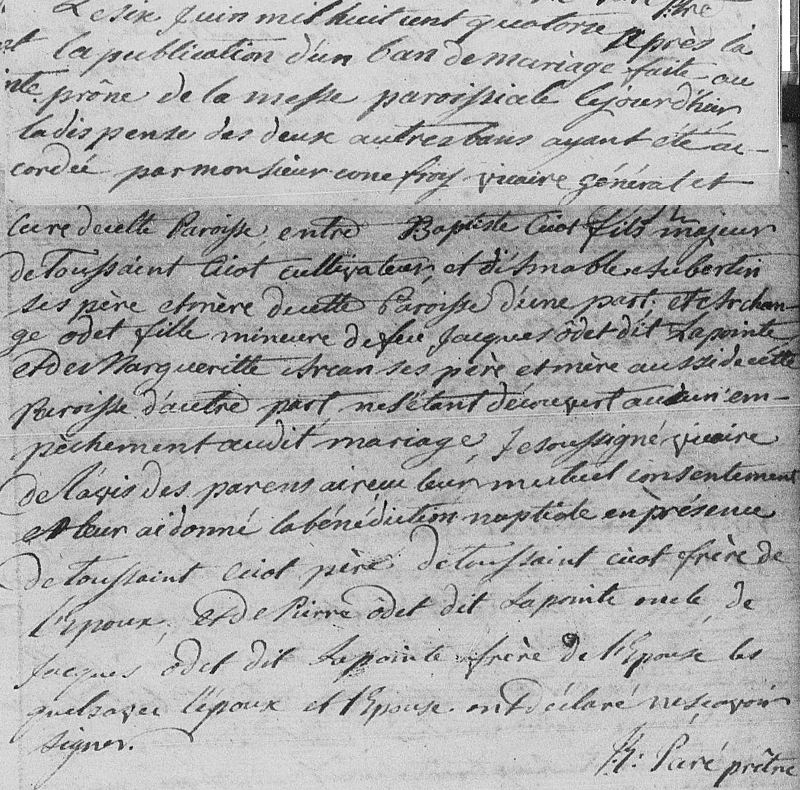 Le six Juin mil huit cent quatorze après la
la publication d'un ban de mariage faite au
prône de la messe paroissiale le jour d'hier
la dispense des deux autres bans ayant été ac-
cordée par monsieur conefroy vicaire général et
curé de cette Paroisse, entre Baptiste Cicot fils majeur
de Toussaint Cicot cultivateur, et d'ismable Aubertin
ses père et mère de cette Paroisse d'une part; et Archan-
ge odet fille mineure de feu Jacques odet dit Lapointe
et de Margueritte Arcan ses père et mère aussi de cette
Paroisse d'autre part ne s'étant découvert aucun em-
pêchement audit mariage, Je soussigné vicaire
de l'avis des parens ai reçu leur mutuel consentement
et leur ai donné la bénédiction nuptiale en présence
de Toussaint Cicot père de Toussaint cicot frère de
l'Epoux, et de Pierre odet dit Lapointe oncle, de
Jacques odet dit Lapointe frère de l'Epouse les
quels avec l'époux et l'Epouse ont déclaré ne sçavoir
signer.
Paré prêtre